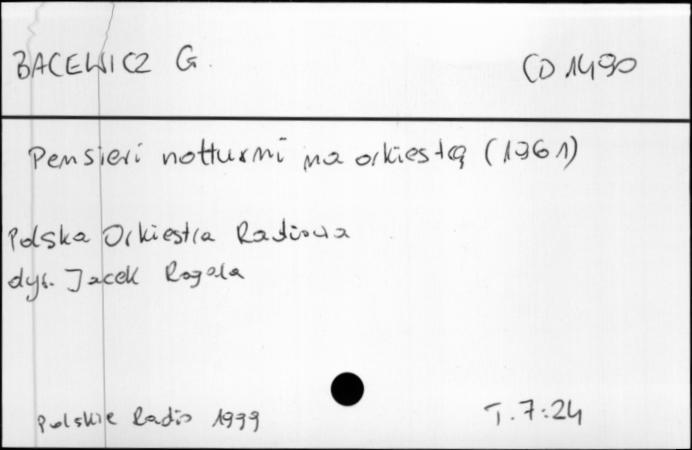 BACEWICZ G. CD 1490
Pensieri notturni na orkiestrę (1961)
Polska Orkiestra Radiowa
dyr. Jacek Rogala
Polskie Radio 1999 T. 7:24